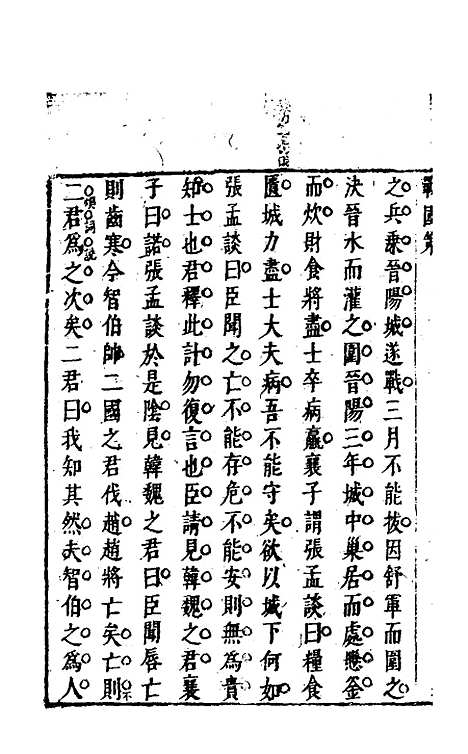 戰國策
之兵乘晉陽城遂戰三月不能拔因舒軍而圍之
決晉水而灌之圍晉陽三年城中巢居而處懸釜
而炊財食將盡士卒病羸襄子謂張孟談曰糧食
匱城力盡士大夫病吾不能守矣欲以城下何如
張孟談曰臣聞之亡不能存危不能安則無為貴
知士也君釋此計勿復言也臣請見韓魏之君襄
子曰諾張孟談於是陰見韓魏之君曰臣聞唇亡
則齒寒今智伯帥二國之君伐趙趙將亡矣亡則
二君為之次矣二君曰我知其然夫智伯之為人